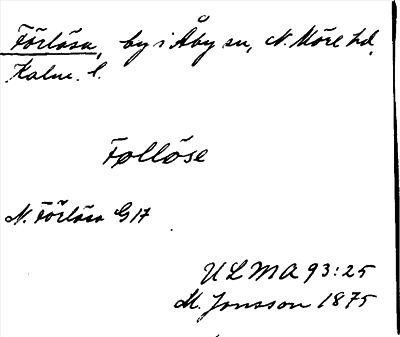 Förlösa, by i Åby sn, N. Möre hd,
Kalm. l.
Follöse
N. Förlösa G 17
ULMA 93:25
M. Jonsson 1875